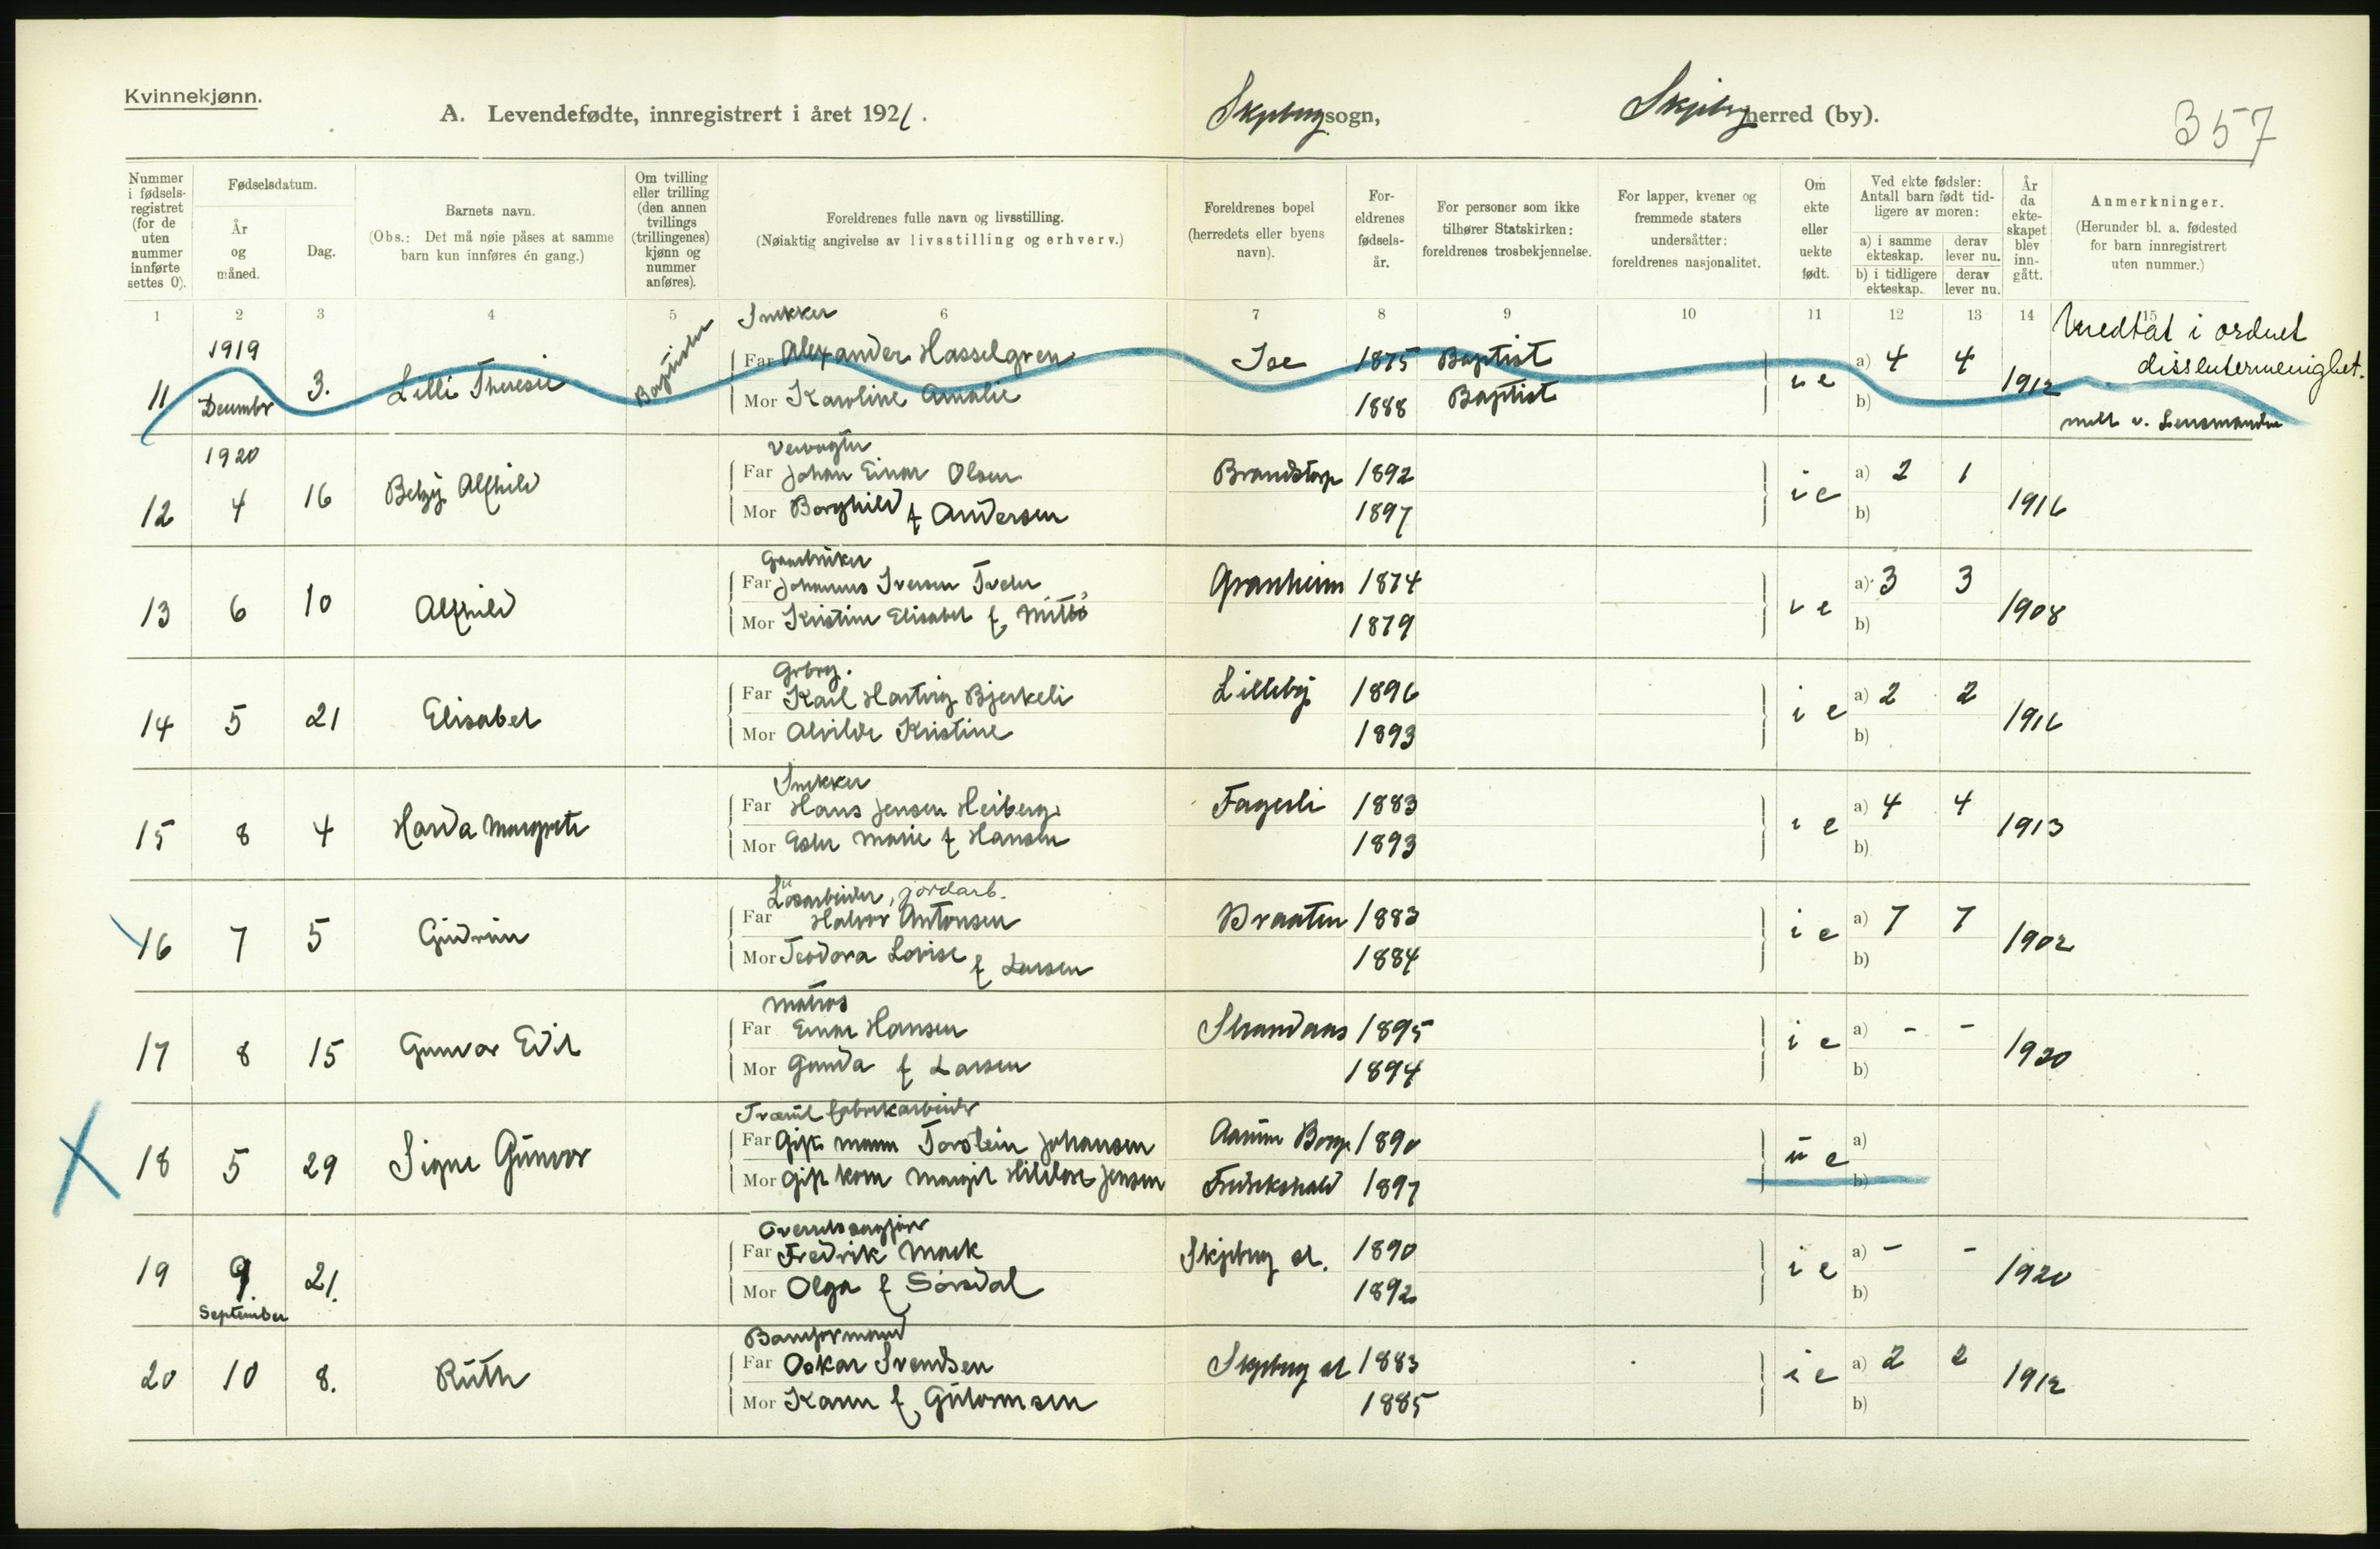 Kvinnekjønn.
A. Levendefødte, innregistrert i året 1921.
Skjeberg sogn,
Skjeberg herred (by).
357
Nummer i fødselsregistret (for de uten nummer innførte settes 0).
Fødselsdatum.
År og måned.
Dag.
Barnets navn.
(Obs.: Det må nøie påses at samme barn kun innføres én gang.)
Om tvilling eller trilling (den annen tvillings (trillingenes) kjønn og nummer anføres).
Foreldrenes fulle navn og livsstilling.
(Nøiaktig angivelse av livsstilling og erhverv.)
Foreldrenes bopel (herredets eller byens navn).
Foreldrenes fødselsår.
For personer som ikke tilhører Statskirken: foreldrenes trosbekjennelse.
For lapper, kvener og fremmede staters undersåtter: foreldrenes nasjonalitet.
Om ekte eller uekte født.
Ved ekte fødsler: Antall barn født tidligere av moren:
a) i samme ekteskap.
derav lever nu.
b) i tidligere ekteskap.
derav lever nu.
År da ekteskapet blev inngått.
Anmerkninger.
(Herunder bl. a. fødested for barn innregistrert uten nummer.)
1 2 3 4 5 6 7 8 9 10 11 12 13 14 15
Snekker
1919
11 Decembr 3. Lilli Theresie
Far Alexander Hasselgren Ise 1875 Baptist
Mor Karoline Amalie 1888 Baptist
i e a) 4 4 1912
b)
i ordnet
dissentermenighet.
meldt v. Lensmanden
1920
12 4 16 Betzy Alfhild
Far Johan Einar Olsen Brandstorp 1892
Mor Borghild f Andersen 1897
i e a) 2 1 1916
b)
Gaardbruker
13 6 10 Alfhild
Far Johannes Iversen Granheim 1874
Mor Kristine Elisabet f 1879
i e a) 3 3 1908
b)
14 5 21 Elisabet
Far Karl Hartvig Bjerkeli Lilleby 1896
Mor Alvilde Kristine 1893
i e a) 2 2 1916
b)
Snekker
15 8 4 Harda Margrete
Far Hans Jensen Heiberg Fagerli 1883
Mor Ester Marie f Hansen 1893
i e a) 4 4 1913
b)
Løsarbeider, jordarb.
16 7 5 Gudrun
Far Halvor Antonsen Braaten 1883
Mor Teodora Lovise f Larsen 1884
i e a) 7 7 1902
b)
Matros
17 8 15 Gunvor Edit
Far Einar Hansen Strandaas 1895
Mor Gunda f Larsen 1894
i e a) - - 1920
b)
fabrikarbeider
18 5 29 Signe Gunvor
Far Gift mann Torstein Johansen 1890
Mor gift kone Margit Jensen Fredrikshald 1897
u e a)
b)
19 9 21.
September
Far Fredrik Mork Skjeberg st. 1890
Mor Olga f Sørsdal 1892
i e a) - - 1920
b)
Baneformand
20 10 8. Ruth
Far Oskar Svendsen Skjeberg st 1883
Mor Karen f Gulormsen 1885
i e a) 2 2 1912
b)